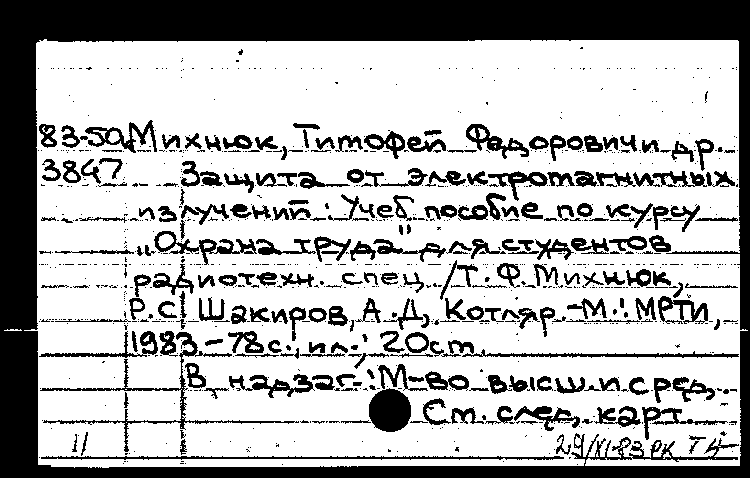 83-50. Михнюк, Тимофей Фадорович и др.
3847 Защита от электромагнитных
излучений : Учеб пособие по курсу
„Охрана труда" для студентов
радиотехн. спец. /Т. Ф. Михнюк,
Р.С. Шакиров, А.Д. Котляр.-М.: МРТИ,
1983.-78с., ил.; 20 ст.
В надзаг.: М-во высш. и сред,.
См. след. карт.
11 29/XI-83 РК Т 4